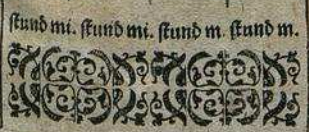 stund mi. stund mi. stund m. stund m.